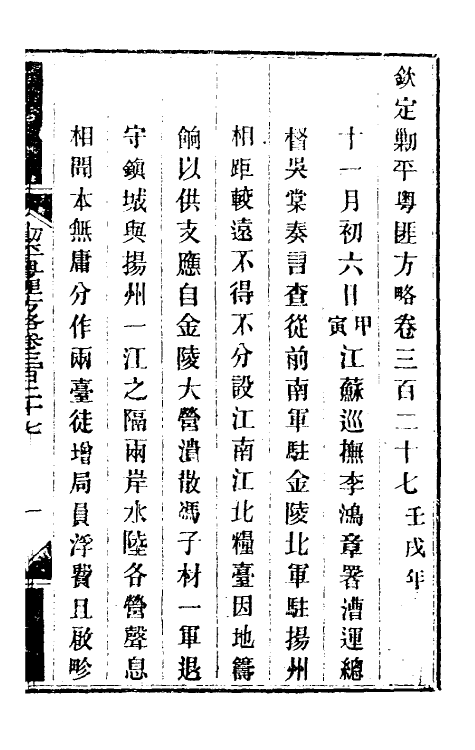 欽定勦平粤匪方略卷三百二十七 壬戌年
十一月初六日甲寅江蘇巡撫李鴻章署漕運總
督吳棠奏言查從前南軍駐金陵北軍駐揚州
相距較遠不得不分設江南江北糧臺因地籌
餉以供支應自金陵大營潰散馮子材一軍退
守鎮城與揚州一江之隔兩岸水陸各營聲息
相聞本無庸分作兩臺徒增局員浮費且啟畛
勦平粤匪方略卷三百二十七 一